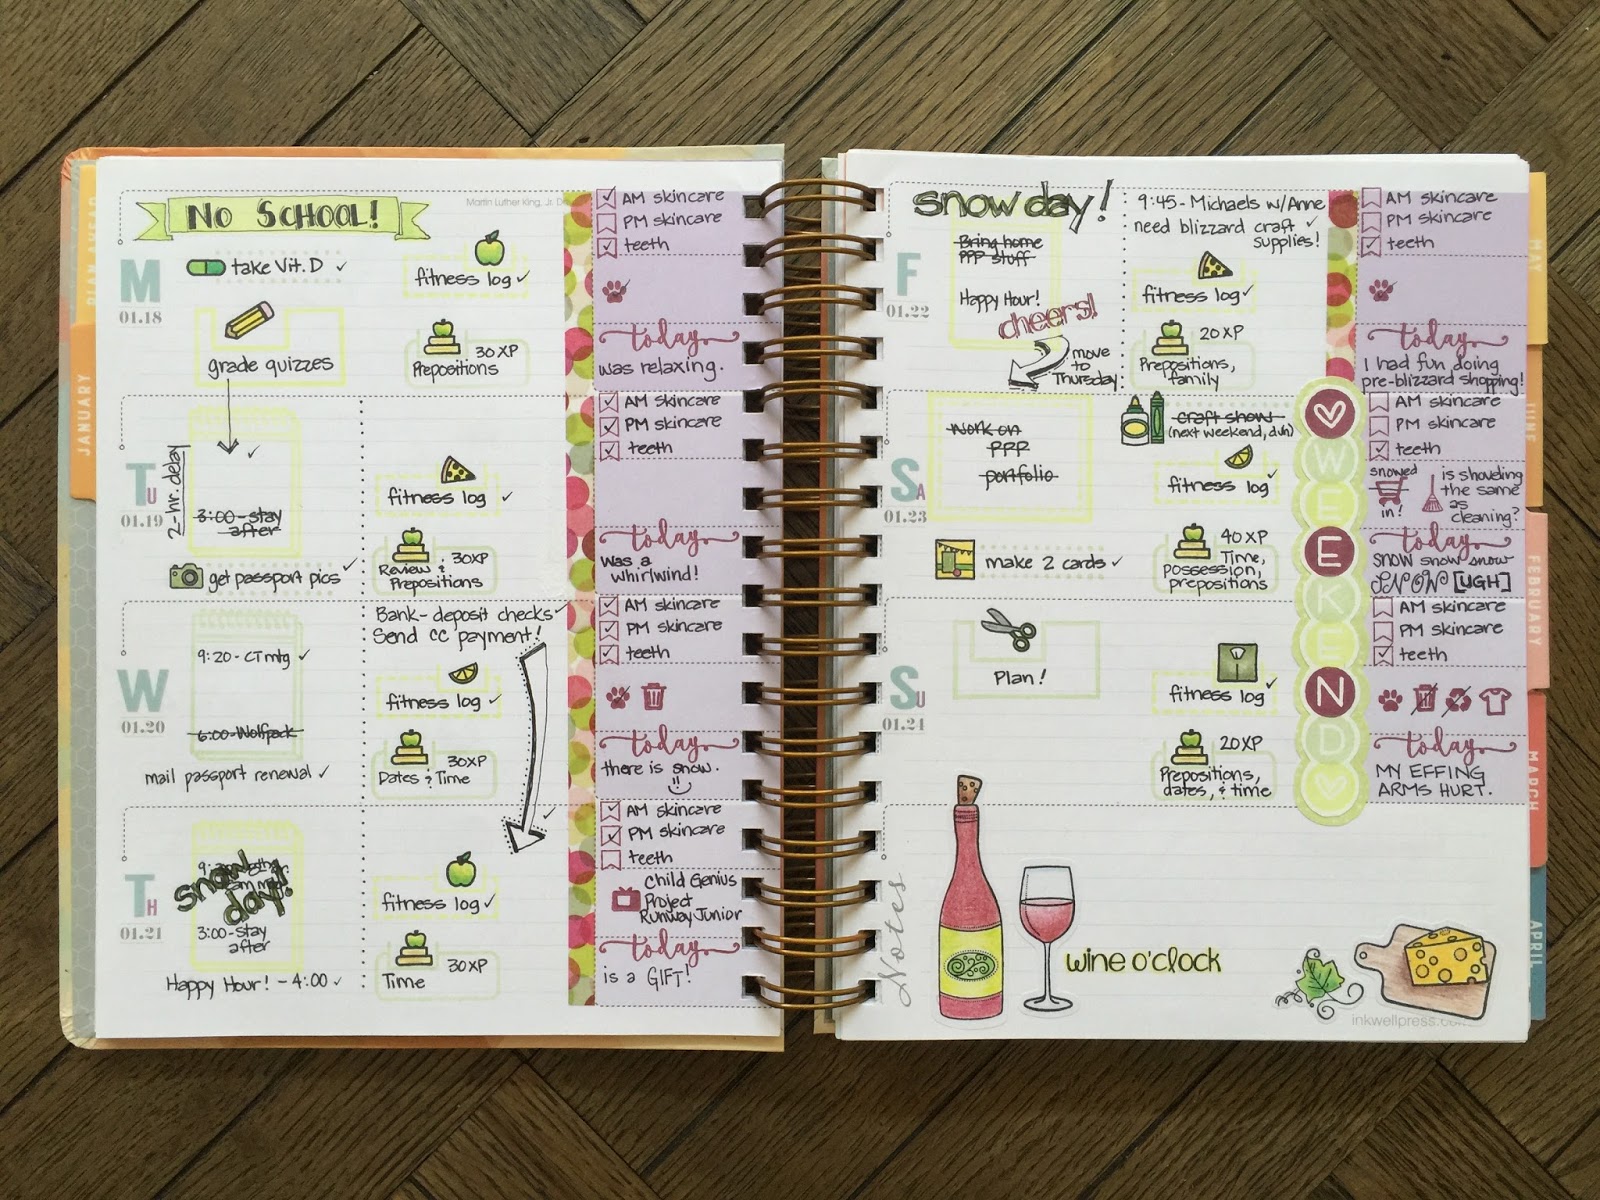 NO SCHOOL!
Martin Luther King, Jr. D
M
01.18
take Vit. D ✓
fitness log ✓
grade quizzes
30 XP
Prepositions
AM skincare
PM skincare
teeth
today
was relaxing.
TU
01.19
2-hr. delay
✓
3:00-stay
after
get passport pics ✓
fitness log ✓
30XP
Review &
Prepositions
AM skincare
PM skincare
teeth
today
was a
whirlwind!
W
01.20
9:20-CT mtg ✓
6:00-Wolfpack
mail passport renewal ✓
Bank- deposit checks ✓
Send CC payment!
fitness log ✓
30XP
Dates & Time
AM skincare
PM skincare
teeth
today
there is snow.
TH
01.21
snow
day!
3:00-stay
after
Happy Hour! - 4:00 ✓
✓
fitness log ✓
30XP
Time
AM skincare
PM skincare
teeth
Child Genius
Project
Runway Junior
today
is a GIFT!
snow day!
F
01.22
Bring home
PPP stuff
Happy Hour!
cheers!
move
to
Thursday
9:45- Michaels w/Anne
need blizzard craft ✓
supplies!
fitness log ✓
20XP
Prepositions,
family
AM skincare
PM skincare
teeth
today
I had fun doing
pre-blizzard shopping!
SA
01.23
Work on
PPP
portfolio
Craft show
(next weekend, duh)
fitness log ✓
make 2 cards ✓
40XP
Time,
possession,
prepositions
AM skincare
PM skincare
teeth
snowed
in!
is shoveling
the same
as
cleaning?
today
snow snow snow
SNOW [UGH]
SU
01.24
Plan!
fitness log ✓
20XP
Prepositions,
dates, & time
AM skincare
PM skincare
teeth
today
MY EFFING
ARMS HURT.
WEEKEND
Notes
wine o'clock
inkwellpress.co
PLAN AHEAD
JANUARY
MAY
JUNE
FEBRUARY
MARCH
APRIL